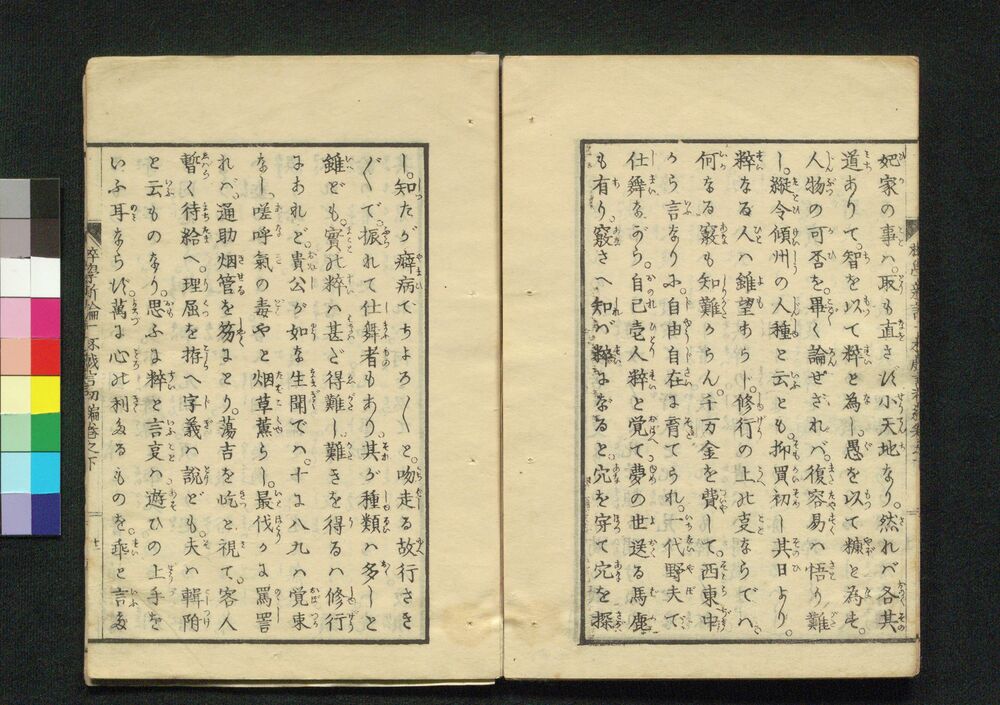 妃家の事ハ。取も直さず小天地なり。然れバ各其
道ありて。智を以て粋と為し。愚を以て糠と為も。
人物の可否を畢く論ぜざれバ。復容易ハ悟り難
し。縦令傾州の人種と云とも。抑買初し其日より。
粋なる人ハ雖望あらし。修行の上の㕝ならでハ。
何なる竅も知難からん。千万金を費して。西東中
から言なりふ。自由自在に育てられ。一代野夫て
仕舞ながら。自己壱人粋と覚て夢の世送る馬鹿
も有り。竅さへ知が粋なると。穴を穿て穴を探
し。知たが癖病でちよろ／＼と。吻走る故行さき
／＼で。振れて仕舞者もあり。其が種類ハ多しと
雖ども。實の粋ハ甚ど得難し。難きを得るハ修行
にあれど。貴公が如な生聞でハ。十に八九ハ覚束
なし。嗟呼氣の毒やと烟草薫らし。最伐かに罵詈
れバ。通助烟管を笏にとり。蕩吉を屹と視て。客人
暫く待給へ。理屈を拵へ字義ハ説ども。夫ハ輯附
と云ものなり。思ふに粋と言㕝ハ遊びの上手を
いふ耳ならず。萬に心の利たるものを。乖と言た
粋學新論一名戯言初編巻之下
廿一